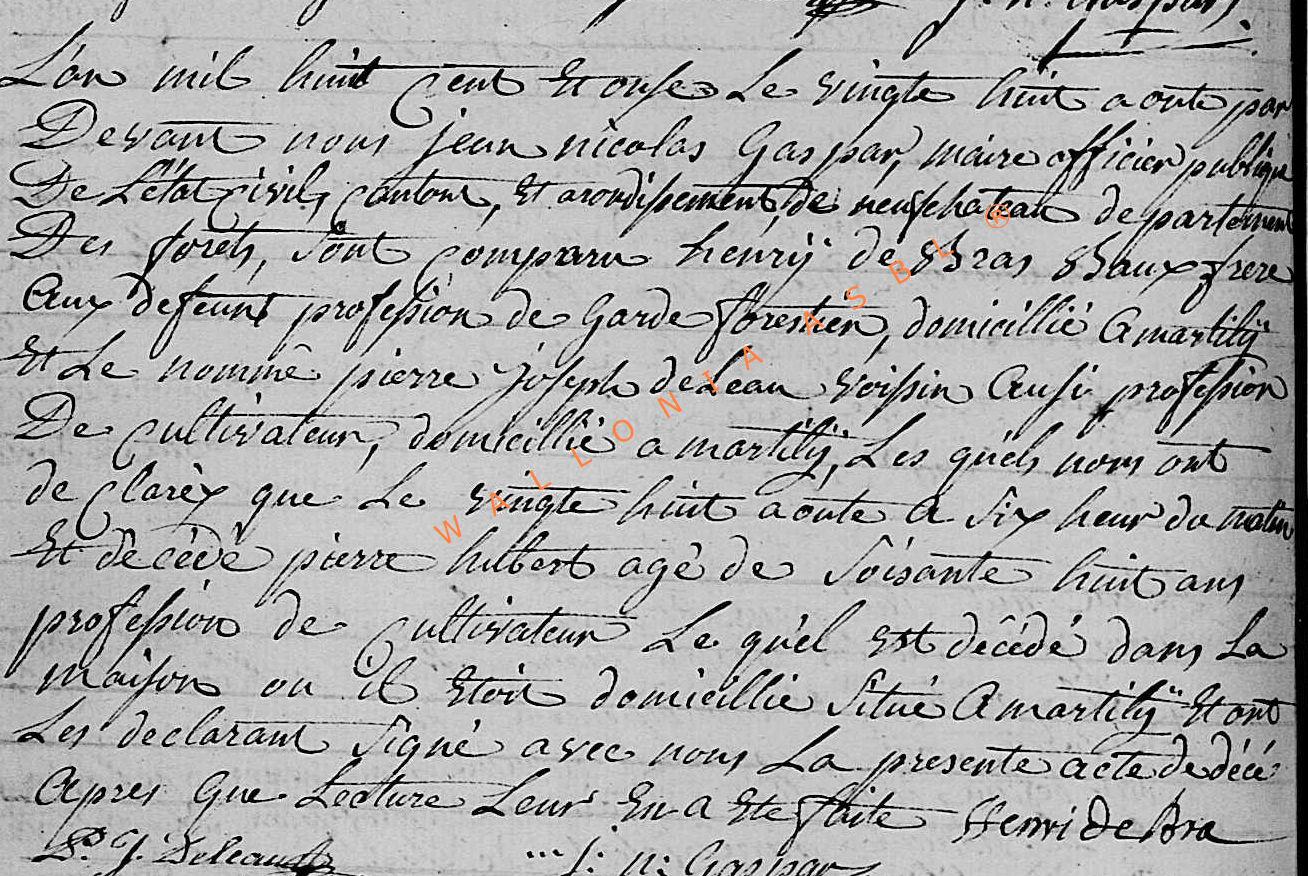 J. n. Gaspar
L'an mil huit Cent Et onse Le vingte huit aoute par
Devant nous jean nicolas Gaspar, maire officier publique
De L'état Civil, Canton, Et arondissement de neufchateau departement
Des forets, Sont Comparu henrij de Bras Baux frere
Aux defeunt profession de Garde forestier, domicillié A martilij
Et Le nommé pierre joseph deLeau voissin Ausi profession
De Cultivateur, domicillié a martilij, Les quéls nous ont
de Clarèx que Le vingte huit aoute a Six heur du matin
Et dêcédé pierre hubert agé de Soisante huit ans
profession de Cultivateur Le quél Est dêcédé dans La
maison ou il Etoit domicillie Situé A martilij Et ont
Les declarant Signé avec nous La presente acte de décé
Apres Que Lecture Leur En a Ete faite Henri de Bra
P. J. Deleau J: n: Gaspar
WALLONIA ASBL ®